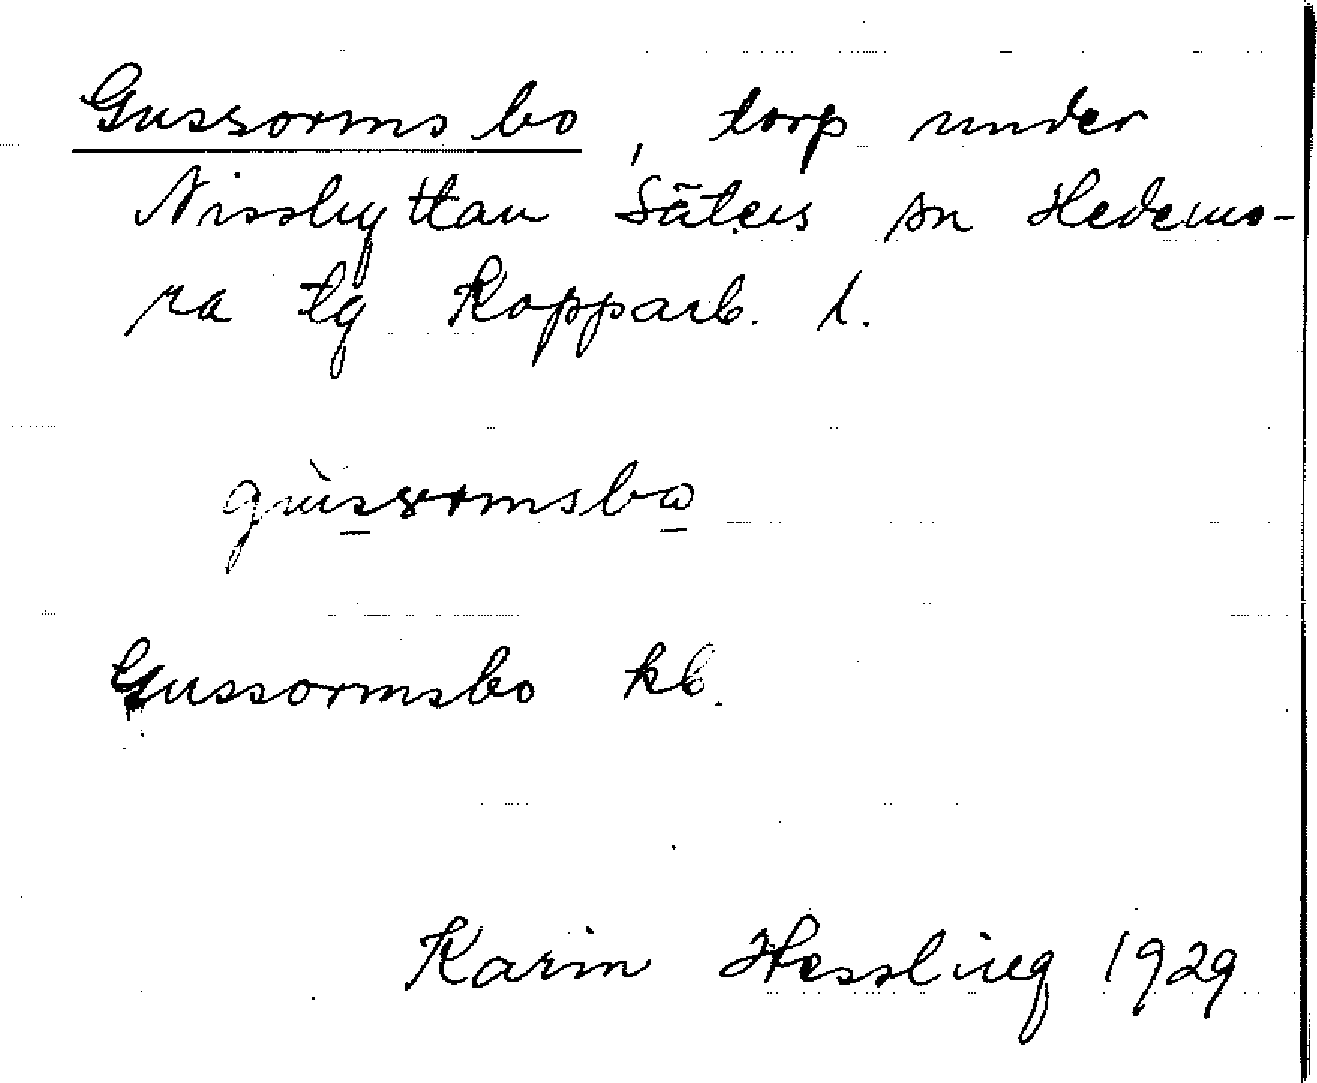 Gussormsbo, torp under
Nisshyttan Säters sn Hedemo-
ra tg Kopparb. l.
gùssormsbo
Gussormsbo kb.
Karin Hessling 1929